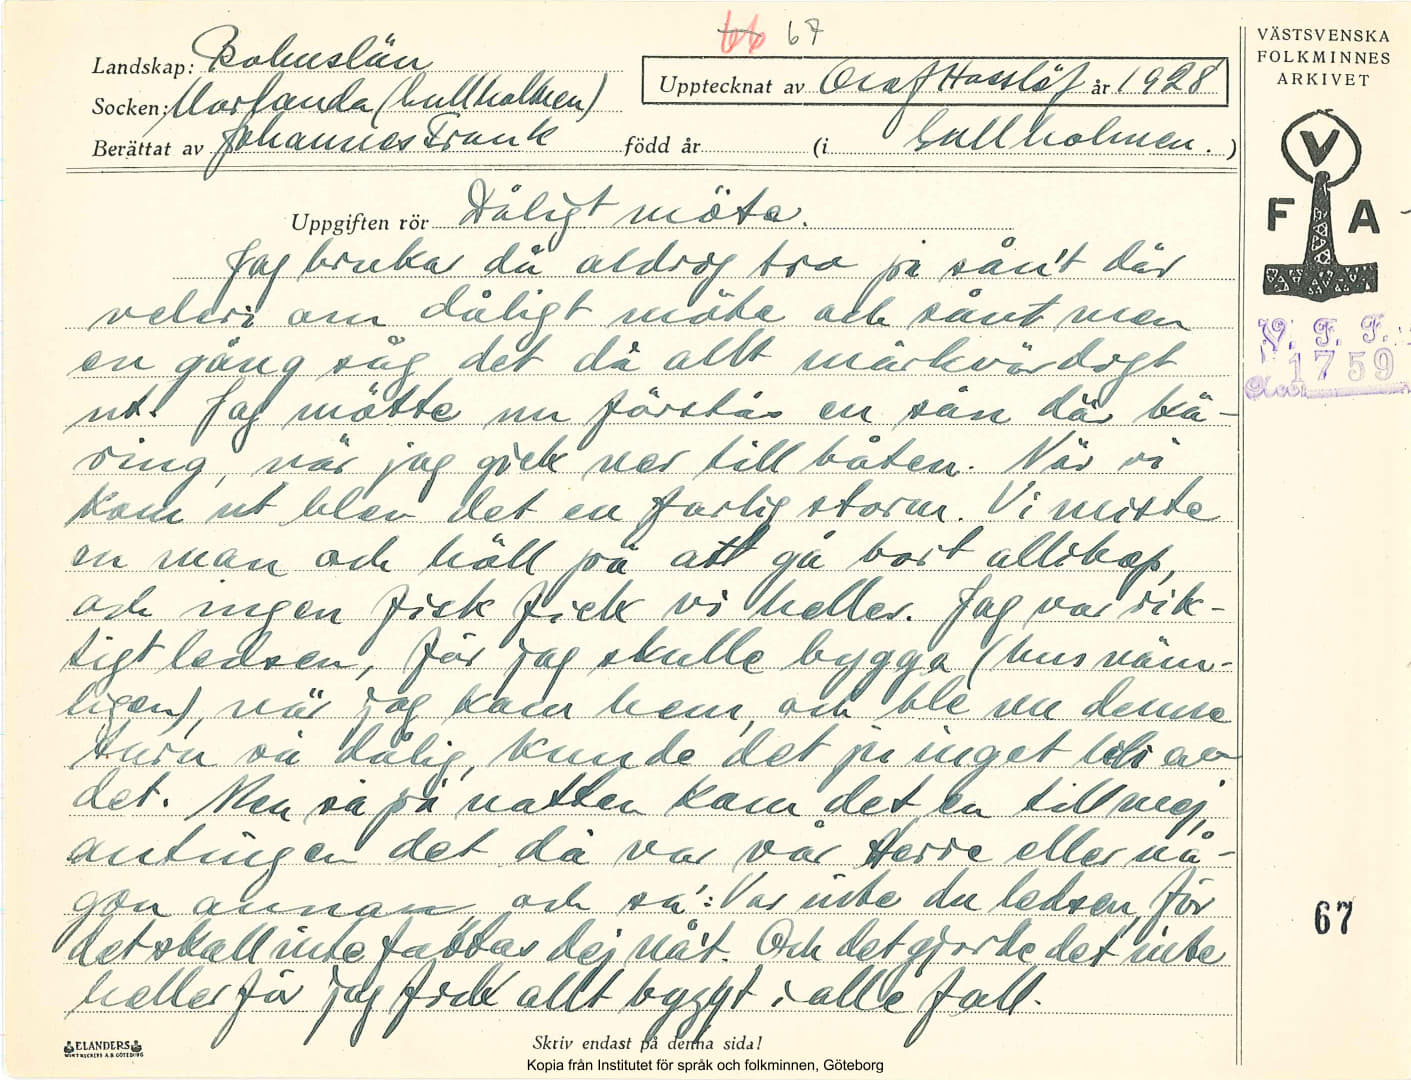 66 67
VÄSTSVENSKA
FOLKMINNES
ARKIVET
Landskap: Bohuslän
Upptecknat av Olof Hasslöf år 1928
Socken: Morlanda (Gullholmen)
Berättat av Johannes Frank född år (i Gullholmen.)
V
F A
Uppgiften rör Dåligt möte.
Jag brukar då aldrig tro på sån't där
veleri om dåligt möte och sånt men
en gång såg det då allt märkvärdigt
ut. Jag mötte nu förstås en sån där kä-
ring, när jag gick ner till båten. När vi
kom ut blev det en farlig storm. Vi miste
en man och höll på att gå bort allihop,
och ingen fisk fick vi heller. Jag var rik-
tigt ledsen, för jag skulle bygga (hus näm-
ligen), när jag kom hem, och ble nu denne
turn så dålig, kunde det ju inget bli av
det. Men så på natten kom det en till mej,
antingen det då var vår Herre eller nå-
gon annan, och sa': Var inte du ledsen, för
det skall inte fattas dej nå't. Och det gjorde det inte
heller för jag fick allt byggt i alle fall.
V. F. F.
1759
67
ELANDERS
Skriv endast på denna sida!
Kopia från Institutet för språk och folkminnen, Göteborg